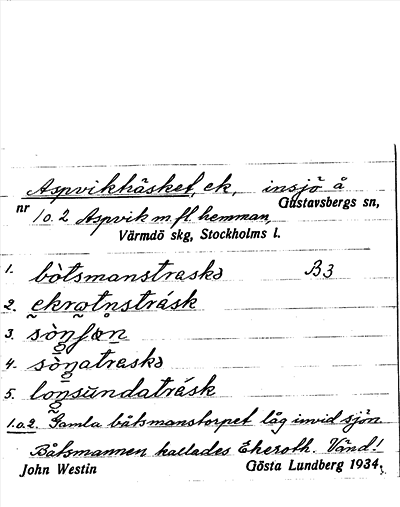 Aspvikträsket, ek, insjö å
Gustavsbergs sn,
nr 1 o. 2 Aspvik m. fl. hemman,
Värmdö skg, Stockholms l.
1. bòtsmanstraskə B3
2. ekrωtnstrásk
3. sòŋ
4. sòŋatraskə
5. loŋsundatrásk
1.o.2. Gamla båtsmanstorpet låg invid sjön.
Båtsmannen kallades Ekeroth. Vänd!
John Westin Gösta Lundberg 1934.